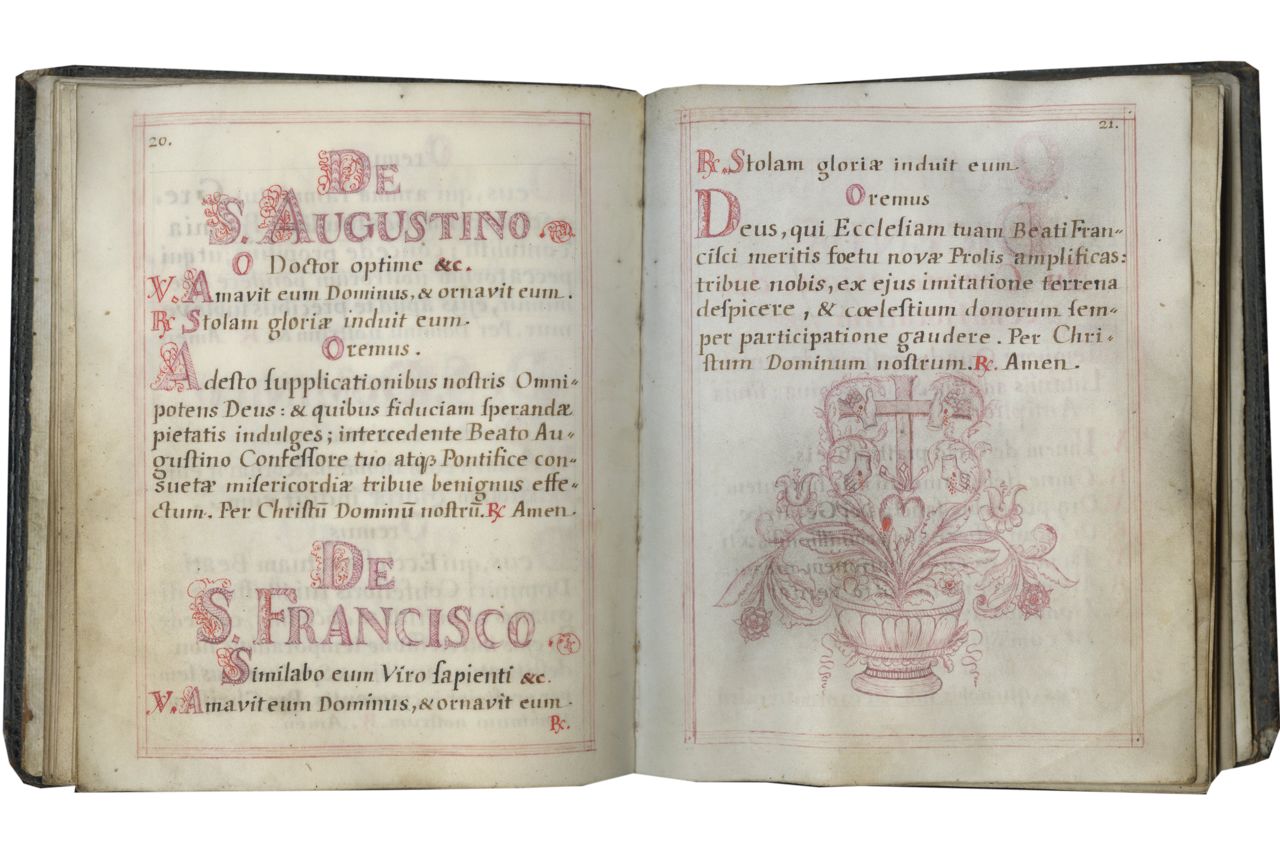 20.
DE
S. AUGUSTINO.
O Doctor optime &c.
V. Amavit eum Dominus, & ornavit eum.
℞ Stolam gloriæ induit eum.
Oremus.
Adesto ſupplicationibus noſtris Omni-
potens Deus: & quibus fiduciam ſperandæ
pietatis indulges; intercedente Beato Au-
guſtino Confeſſore tuo atqꝫ Pontifice con-
ſuetæ miſericordiæ tribue benignus effe-
ctum. Per Chriſtū Dominū noſtrū. ℞ Amen.
DE
S. FRANCISCO.
Similabo eum Viro ſapienti &c.
V. Amavit eum Dominus, & ornavit eum.
℞.
21.
℞. Stolam gloriæ induit eum.
Oremus
Deus, qui Eccleſiam tuam Beati Fran-
ciſci meritis foetu novæ Prolis amplificas:
tribue nobis, ex ejus imitatione terrena
deſpicere, & cœleſtium donorum ſem-
per participatione gaudere. Per Chri-
ſtum Dominum noſtrum. ℞. Amen.